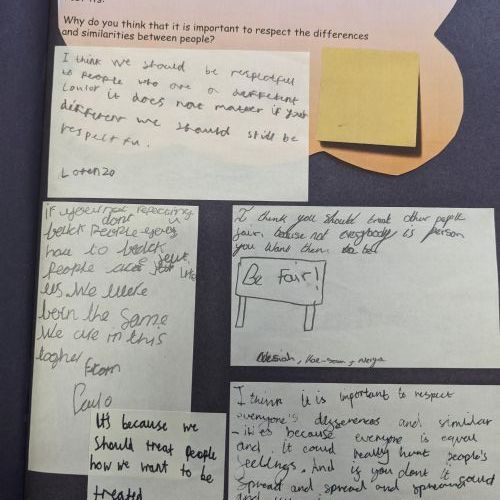 Why do you think that it is important to respect the differences
and similarities between people?
I think we should be respectful
to people who are a different
coulor it does not matter if your
different we should still be
respectfu.
Lorenzo
if your not repecting
dont u
black people
have to
people are just like
us. We were
born the same
We are in this
togher
From
Paulo
Its because we
should treat people
how we want to be
treated
I think you should treat other people
fair, because not everybody is person
you want them to be
Be Fair!
I think it is important to respect
everyone's differences and similar
-ities because everyone is equal
and it could really hurt people's
feelings. And if you dont it could
spread and spread and spread
and